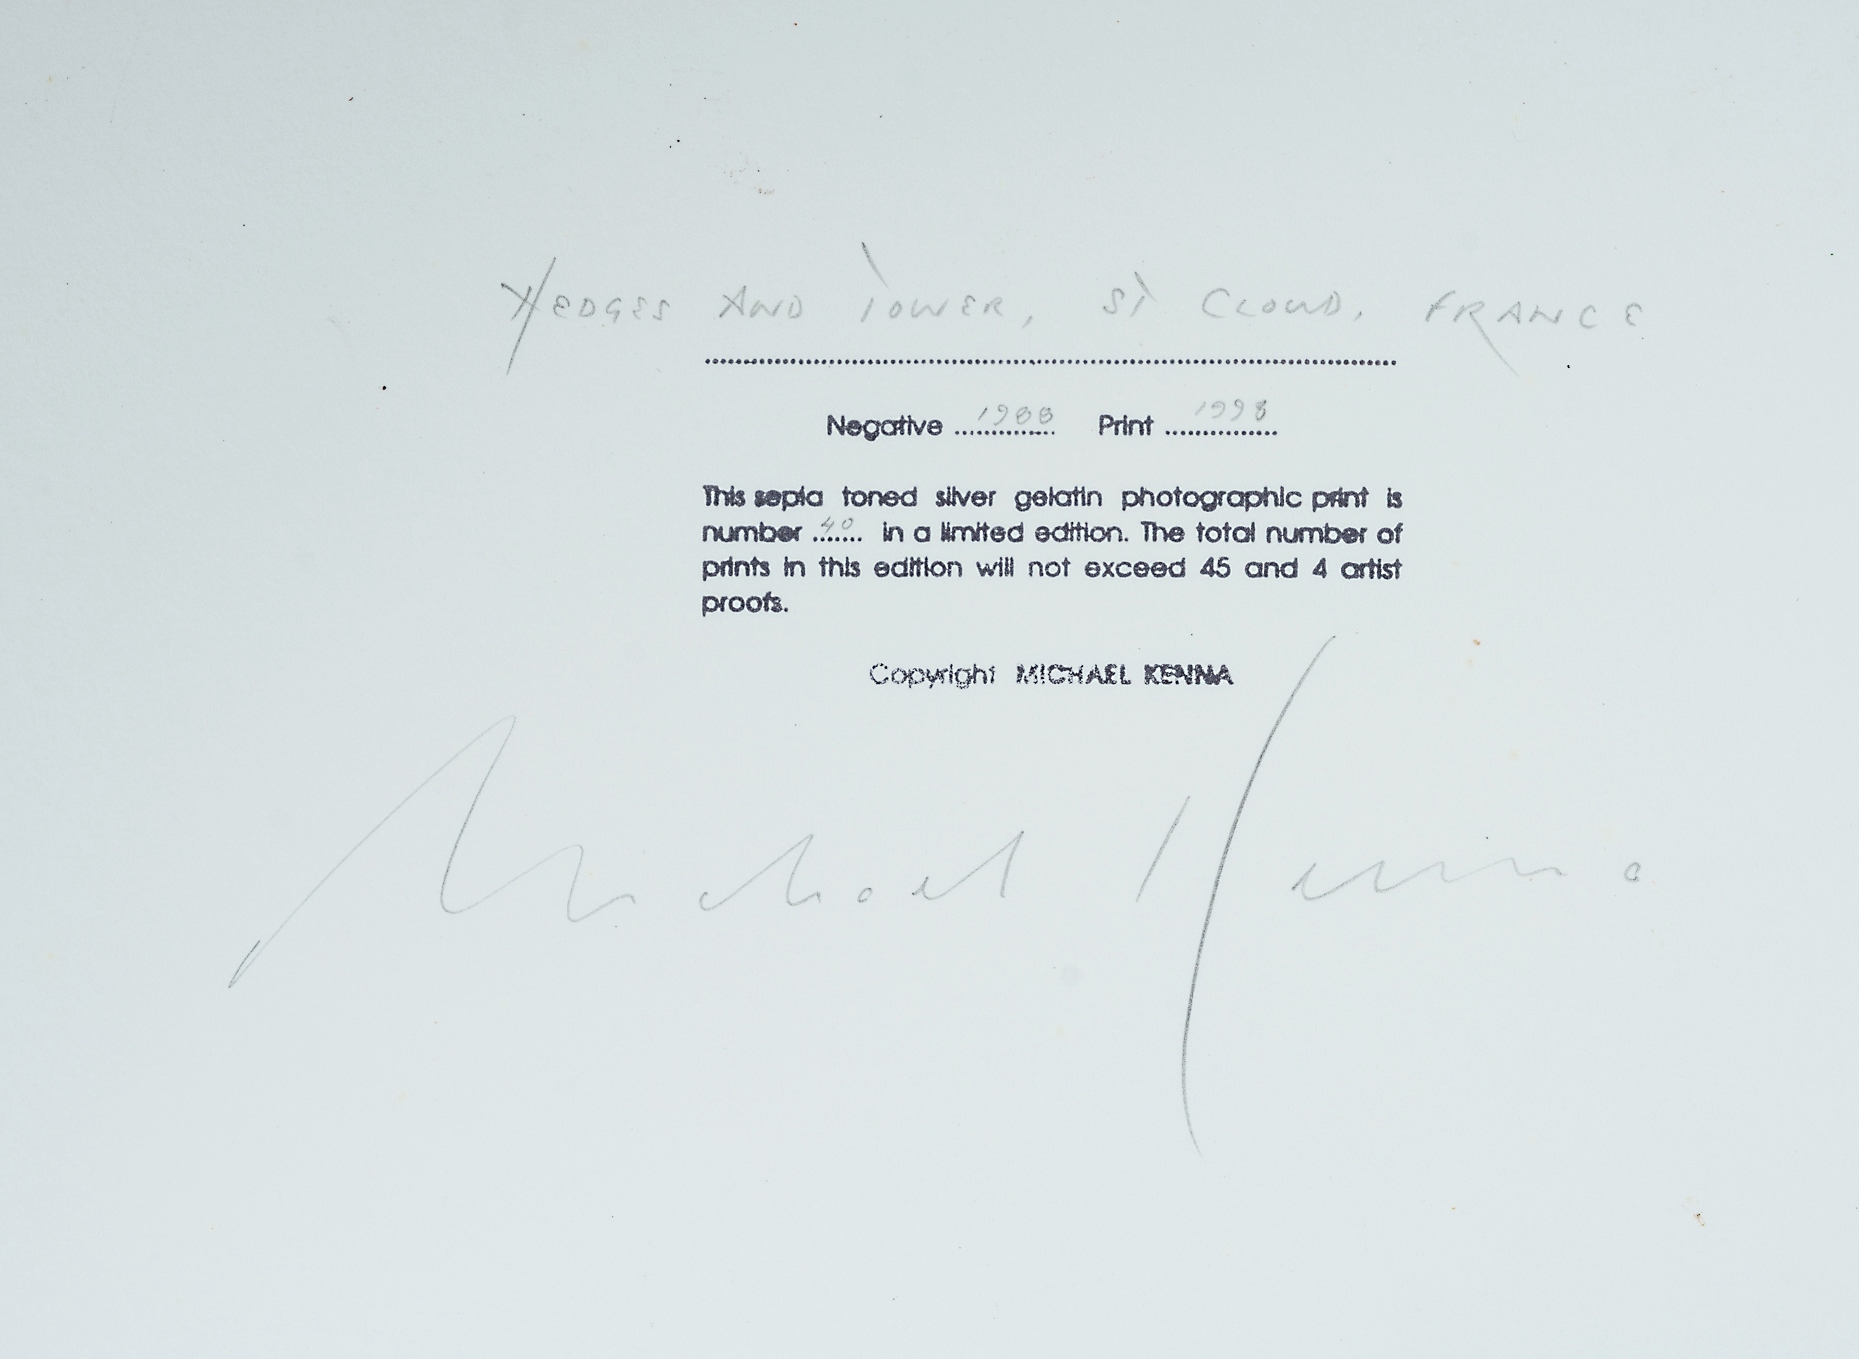 HEDGES AND TOWER, ST CLOUD, FRANCE
Negative 1988 Print 1998
This sepia toned silver gelatin photographic print is
number 40 in a limited edition. The total number of
prints in this edition will not exceed 45 and 4 artist
proofs.
Copyright MICHAEL KENNA
Michael Kenna